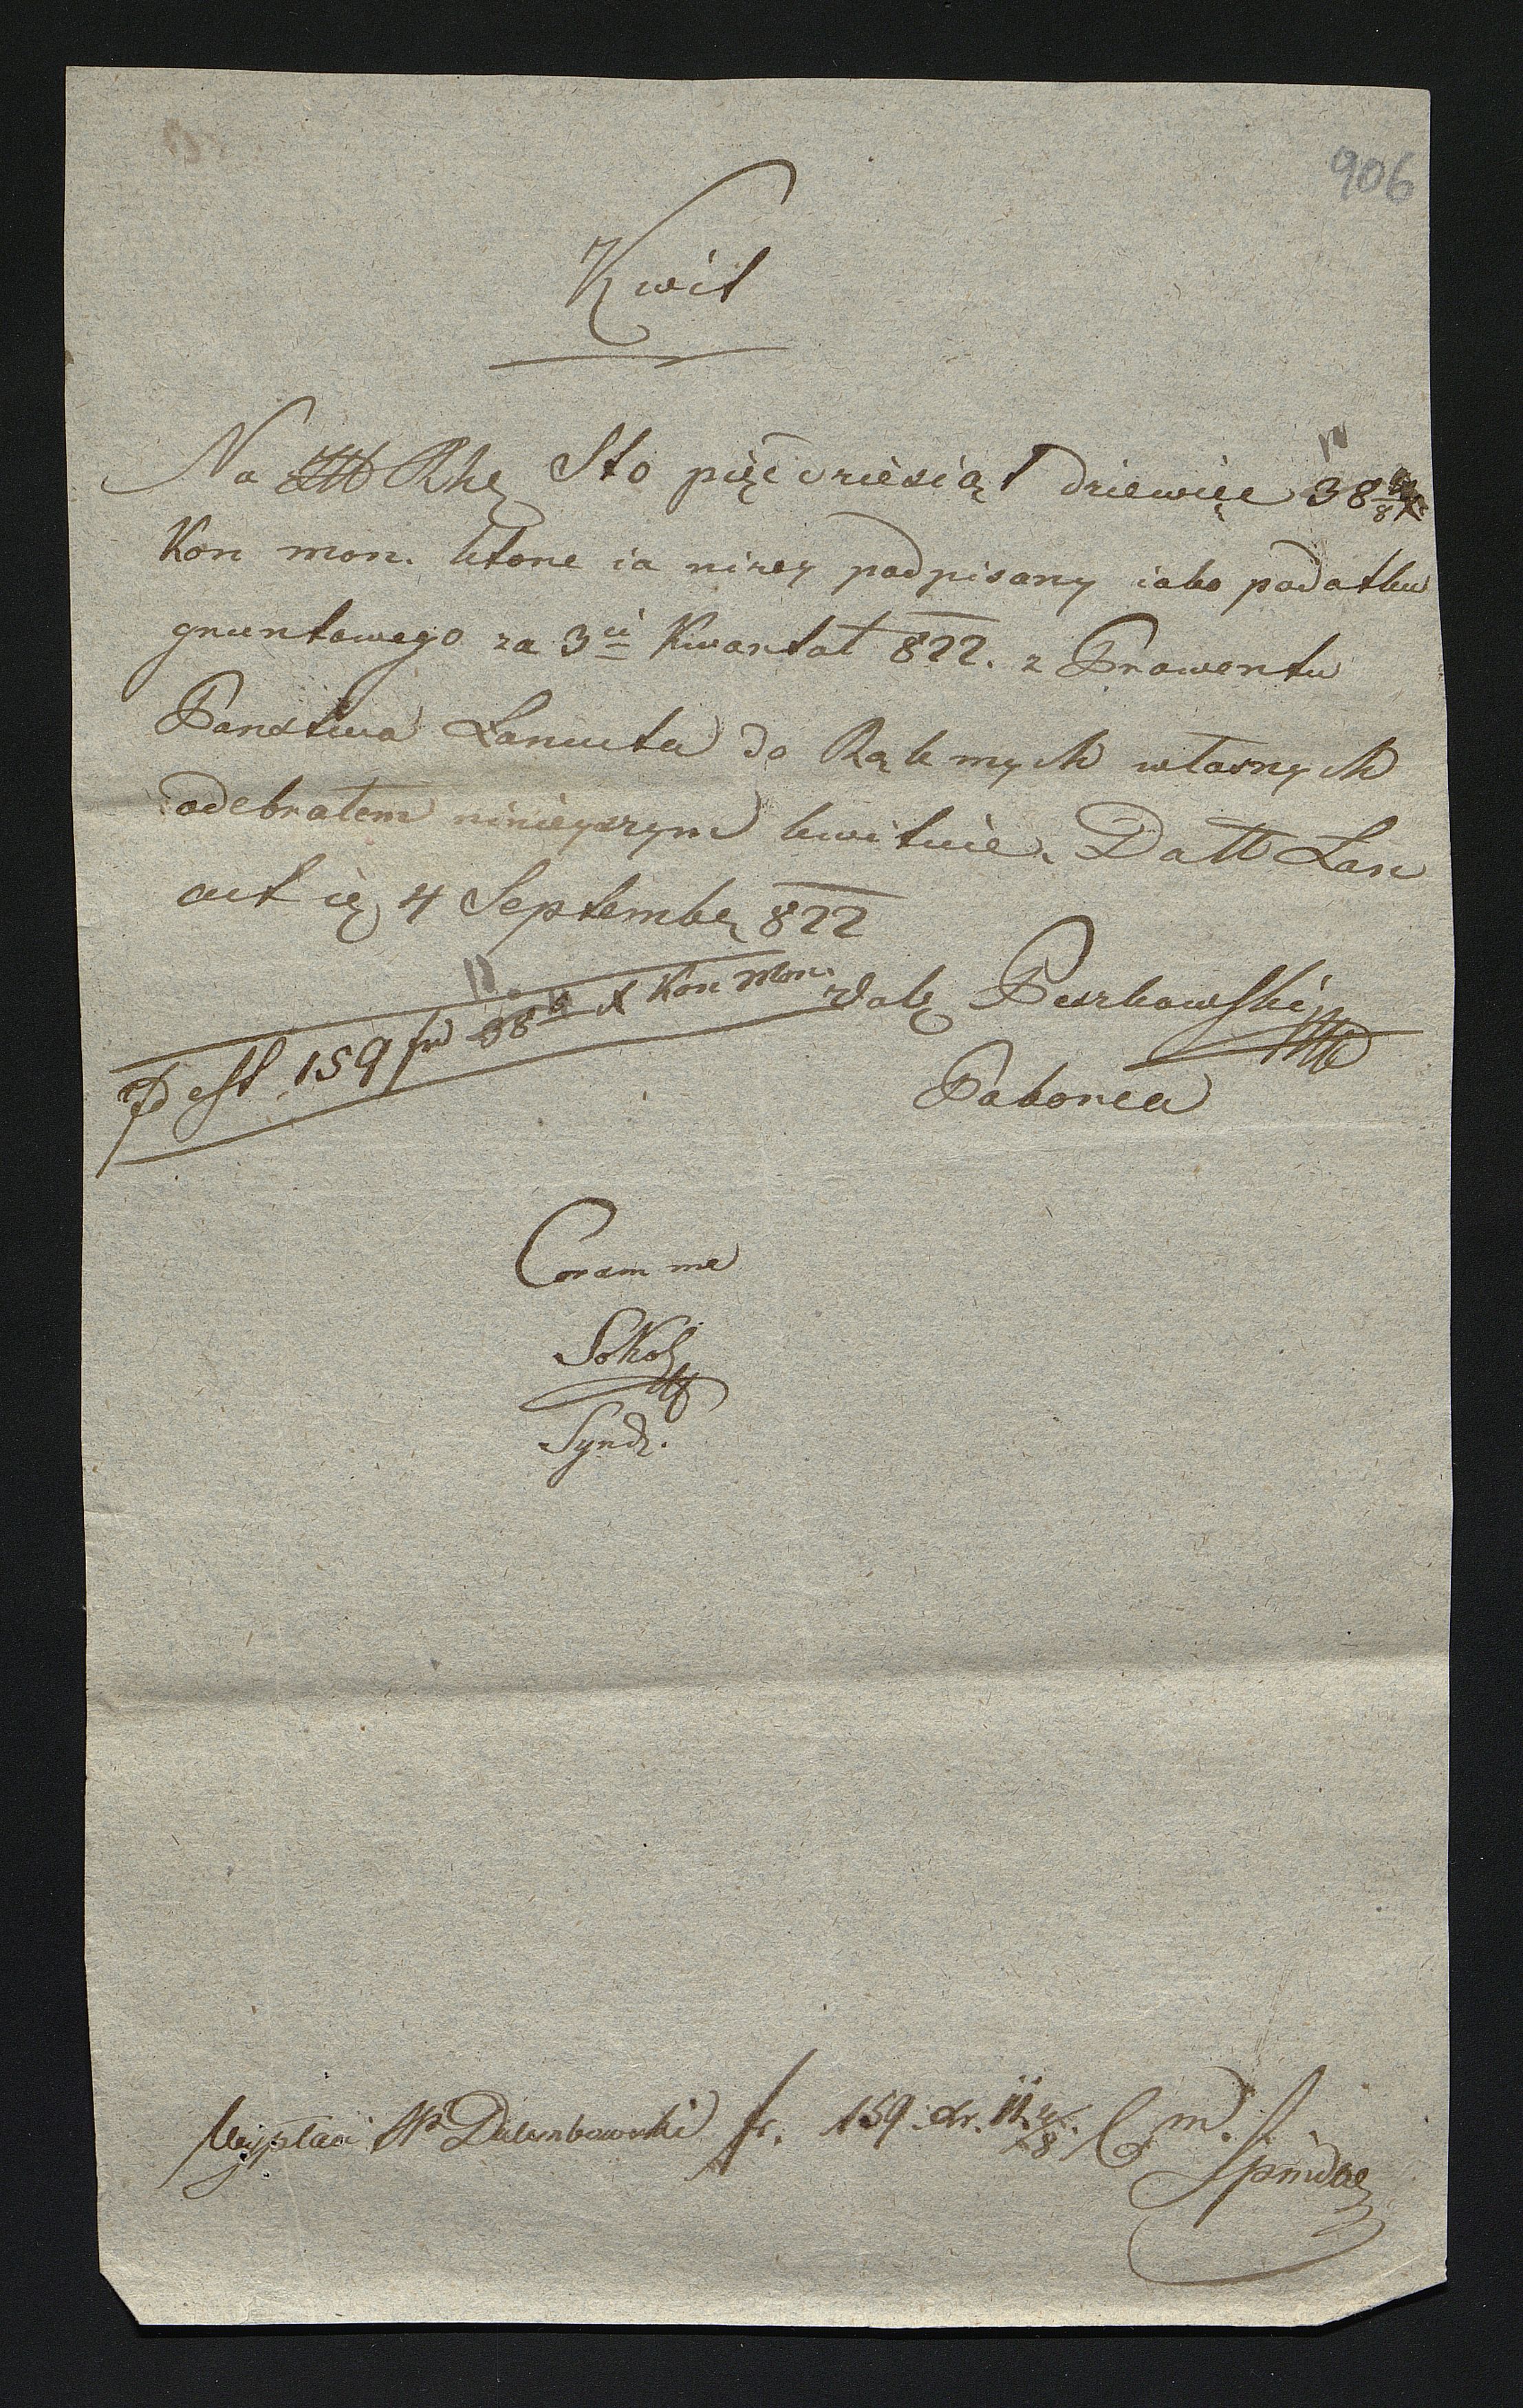 906
Kwit
Na Rhe Sto pięcdziesiąt dziewięc 38
Kon mon. ktore ia nizey podpisany iako podatku
gruntowego za 3ci Kwartał 822. z Prowentu
Panstwa Lancuta do Rąk mych własnych
odebrałem ninieyszym kwituie. Datt Lan
cut ię 4 September 822
Id est 159 fr 38 x Kon mon.
Peszkowski
Paborca
Coram me
Sokol
Synd.
Wypłaci JP Dulembowski fr. 159. xr. 11 C. m.